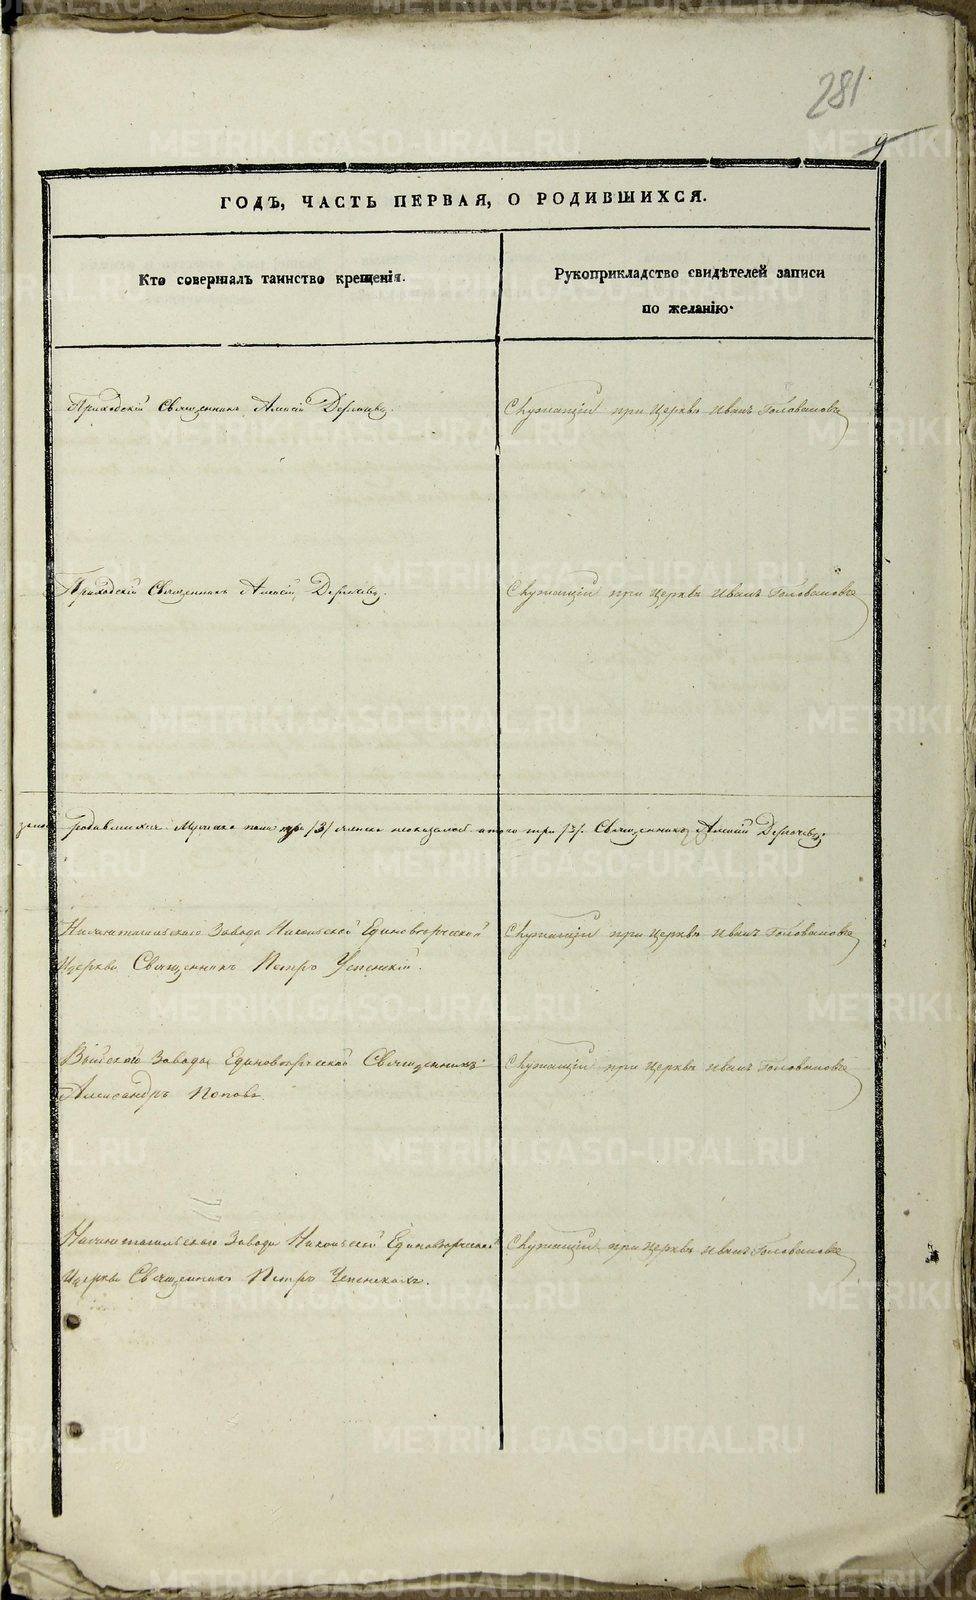 281
9
ГОДЪ, ЧАСТЬ ПЕРВАЯ, О РОДИВШИХСЯ.
Кто совершалъ таинство крещенія.
Рукоприкладство свидѣтелей записи
по желанію.
Приходскій Священникъ Алексій
Служащій при Церквѣ Иванъ Головановъ
Приходскій Священникъ Алексій
Служащій при Церквѣ Иванъ Головановъ
родившихся Мужеска пола три /3/ женска неоказалось итого три /3/. Священникъ Алексій
Нижнетагильскаго Завода Никольской Единоверческой
Церкви Священникъ Петръ Успенскій.
Служащій при Церквѣ Иванъ Головановъ
Завода Единоверческой Священникъ
Александръ Поповъ.
Служащій при Церквѣ Иванъ Головановъ
Нижнетагильскаго Завода Никольской Единоверческой
Церкви Священникъ Петръ
Служащій при Церквѣ Иванъ Головановъ
METRIKI.GASO-URAL.RU